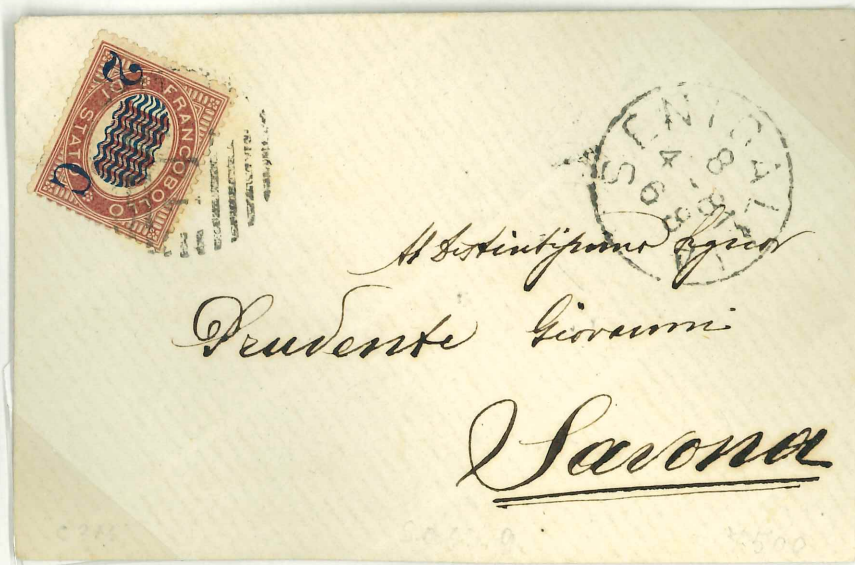 2
C
FRANCOBOLLO
DI STATO
SENIGALLIA
Al Distintissimo Signor
Prudente Giovanni
Savona